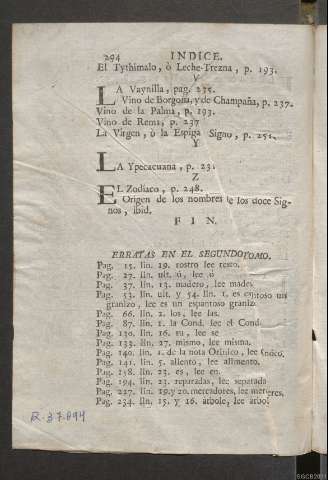 294 INDICE.
El Tythimalo, ò Leche-Trezna, p. 193.
V
LA Vaynilla, pag. 235.
Vino de Borgoña, y de Champaña, p. 237.
Vino de la Palma, p. 193.
Vino de Rems, p. 237
La Virgen, ò la Espiga Signo, p. 251.
Y
LA Ypecacuana, p. 23.
Z
EL Zodiaco, p. 248.
Origen de los nombres de los doce Sig-
nos, ibid.
FIN.
ERRATAS EN EL SEGUNDO TOMO.
Pag. 15. lin. 19. rostro lee resto.
Pag. 27. lin. ult. ù, lee ú
Pag. 37. lin. 13. madero, lee mader
Pag. 53. lin. ult. y 54. lin. 1. es espantoso un
granizo, lee es un espantoso granizo
Pag. 66. lin. 2. los, lee las.
Pag. 87. lin. 1. la Cond. lee el Cond
Pag. 130. lin. 16. su, lee se
Pag. 133. lin. 27. mismo, lee misma.
Pag. 140. lin. 1. de la nota Orinico, lee Indico.
Pag. 141. lin. 5. aliento, lee alimento.
Pag. 158. lin. 23. es, lee en.
Pag. 194. lin. 23. reparadas, lee separada
Pag. 227. lin. 19. y 20. mercadores, lee merceres,
Pag. 234. lin. 15. y 16. arbole, lee arbol
R-37.894
BGCB2011